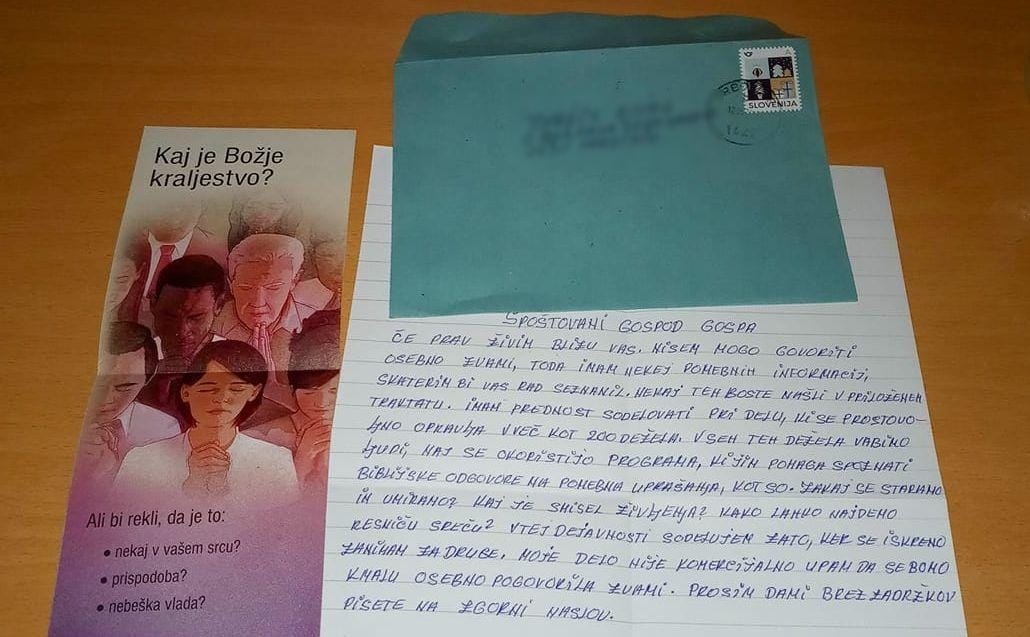 Kaj je Božje
kraljestvo?
Ali bi rekli, da je to:
• nekaj v vašem srcu?
• prispodoba?
• nebeška vlada?
A
SLOVENIJA
SPOŠTOVANI GOSPOD GOSPA
ČE PRAV ŽIVIM BLIZU VAS. NISEM MOGO GOVORITI
OSEBNO ZVAMI, TODA IMAM NEKEJ POMEBNIH INFORMACIJ,
SKATERIM BI VAS RAD SEZNANIL. NEKAJ TEH BOSTE NAŠLI V PRILOŽENEM
TRAKTATU. IMAM PREDNOST SODELOVATI PRI DELU, KI SE PROSTOVO-
LJNO OPRAVLJA V VEČ KOT 200 DEŽELA. V SEH TEH DEŽELA VABIMO
LJUDI, NAJ SE OKORISTIJO PROGRAMA, KI JIM POMAGA SPOZNATI
BIBLIJSKE ODGOVORE NA POMEBNA UPRAŠANJA, KOT SO. ZAKAJ SE STARAMO
IN UMIRAMO? KAJ JE SMISEL ŽIVLJENJA? KAKO LAHKO NAJDEMO
RESNIČU SREČU? VTEJ DEJAVNOSTI SODELUJEM ZATO, KER SE ISKRENO
ZANIMAM ZA DRUGE. MOJE DELO NIJE KOMERCIJALNO UPAM DA SE BOMO
KMALU OSEBNO POGOVORILA ZVAMI. PROSIM DA MI BREZ ZADRŽKOV
PIŠETE NA ZGORNI NASLOV.